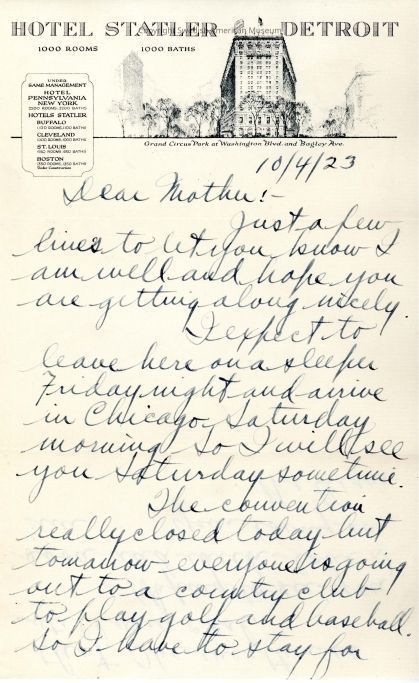 HOTEL STATLER DETROIT
1000 ROOMS 1000 BATHS
Copyright Swedish American Museum
UNDER
SAME MANAGEMENT
HOTEL
PENNSYLVANIA
NEW YORK
2200 ROOMS, 2200 BATHS
HOTELS STATLER
BUFFALO
1100 ROOMS, 1100 BATHS
CLEVELAND
1000 ROOMS, 1000 BATHS
ST. LOUIS
650 ROOMS, 650 BATHS
BOSTON
1350 ROOMS, 1350 BATHS
Under Construction
Grand Circus Park at Washington Blvd. and Bagley Ave.
10/4/23
Dear Mother:-
Just a few
lines to let you know I
am well and hope you
are getting along nicely.
I expect to
leave here on a sleeper
Friday night and arrive
in Chicago Saturday
morning so I will see
you Saturday sometime.
The convention
really closed today but
tomorrow everyone is going
out to a country club
to play golf and baseball.
So I have to stay for